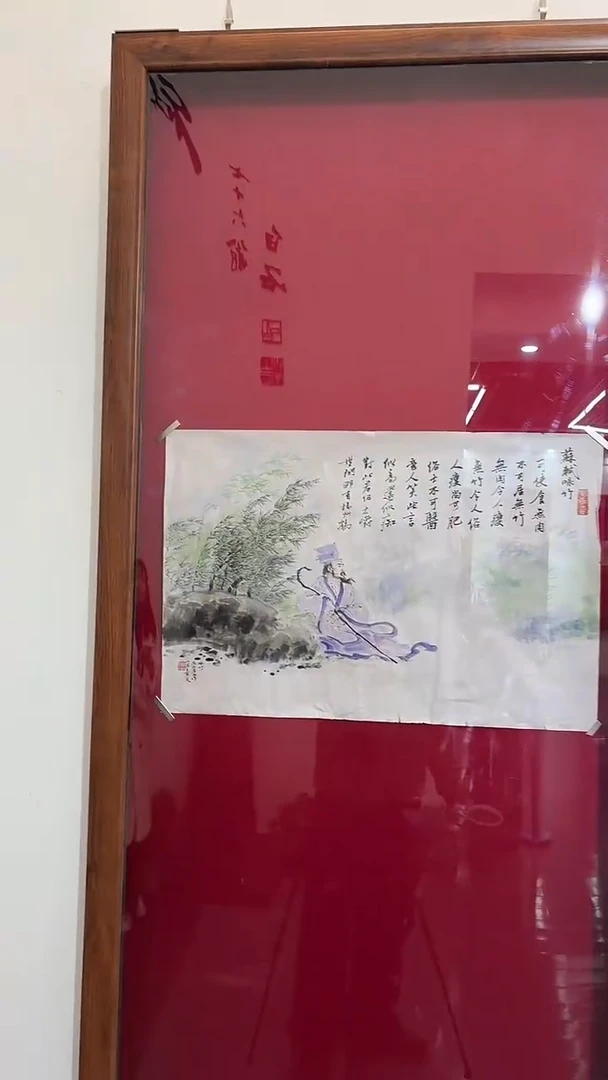 九十六翁
白石
蘇軾咏竹
可使食無肉
不可居無竹
無肉令人瘦
無竹令人俗
人瘦尚可肥
俗士不可醫
旁人笑此言
似高還似癡
對此君仍大嚼
世間那有揚州鶴